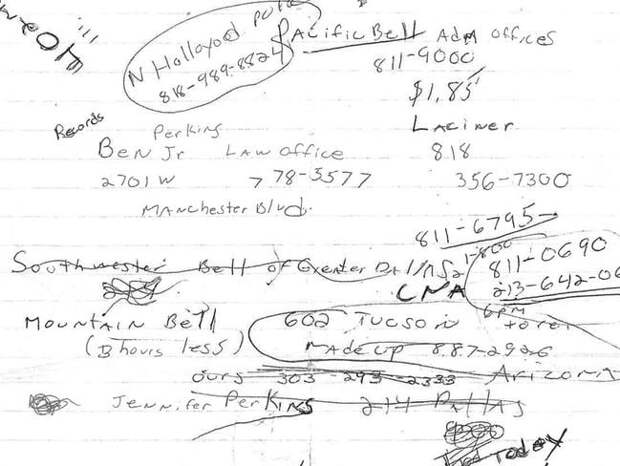 N Hollywood
818-989-8824
Pacific Bell Adm Offices
811-9000
$1.85
Records
Perkins
Ben Jr Law office
2701 W 778-5577
Manchester Blvd.
Laciner
818
356-7300
811-6795
1-800
811-0690
Southwester Bell of Greater
CNA
6pm
Mountain Bell
(3 hours less)
602 Tucson
Made up 887-2926
ours 303-293-2333 Arizona
Jennifer Perkins 214 Dallas
Today